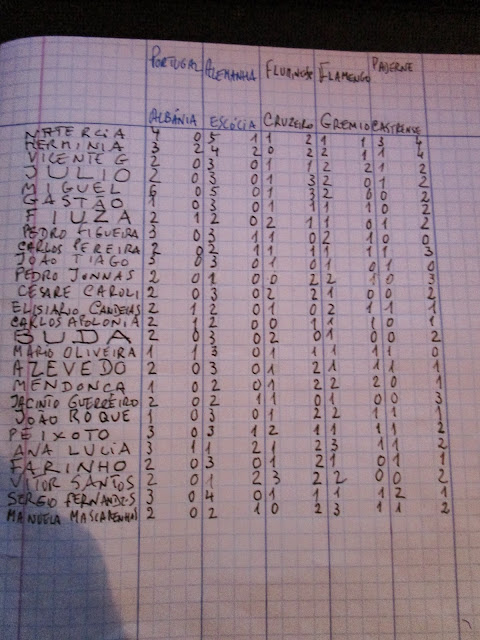 PORTUGAL ALEMANHA FLAMENGO PADERNE
ALBÂNIA ESCÓCIA CRUZEIRO GREMIO CASTRENSE
NATERCIA 4 0 5 1 1 2 1 1 3 4
HERMINIA 3 2 4 2 0 2 2 1 1 4
VICENTE G 2 0 3 0 1 1 2 2 1 2
JULIO 2 0 3 0 1 3 2 0 1 2
MIGUEL 6 0 5 0 1 3 2 0 0 2
GASTÃO 1 0 3 0 1 1 1 1 0 2
FIUZA 2 1 2 0 2 1 1 0 1 2
PEDRO FIGUEIRA 3 0 3 1 1 0 2 1 0 0
CARLOS PEREIRA 2 0 2 1 1 1 1 1 1 3
JOÃO TIAGO 5 0 3 0 1 0 1 0 1 0
PEDRO JONNAS 2 0 1 0 0 2 2 1 0 3
CESARE CAROLI 2 0 3 0 2 2 1 0 0 2
ELISIARIO CANDEIAS 2 1 2 0 1 0 2 1 1 1
CARLOS APOLONIA 2 1 2 0 0 1 1 1 0 1
BUDA 2 0 3 0 2 0 1 0 0 2
MARIO OLIVEIRA 1 1 3 0 1 1 1 1 1 0
AZEVEDO 2 0 3 0 1 2 1 1 1 2
MENDONCA 1 0 2 0 1 2 2 2 0 1
JACINTO GUERREIRO 2 0 2 1 1 0 1 0 0 3
JOÃO ROQUE 1 0 3 0 1 2 2 1 1 1
PEIXOTO 3 0 3 1 2 1 1 1 1 2
ANA LUCIA 3 1 1 2 1 2 3 1 1 2
FARINHO 2 0 3 0 1 2 1 0 1 1
VITOR SANTOS 2 0 1 2 3 2 2 0 0 2
SERGIO FERNANDES 3 0 4 0 1 1 1 1 2 1
MANUELA MASCARENHAS 2 0 2 1 0 2 3 1 1 2